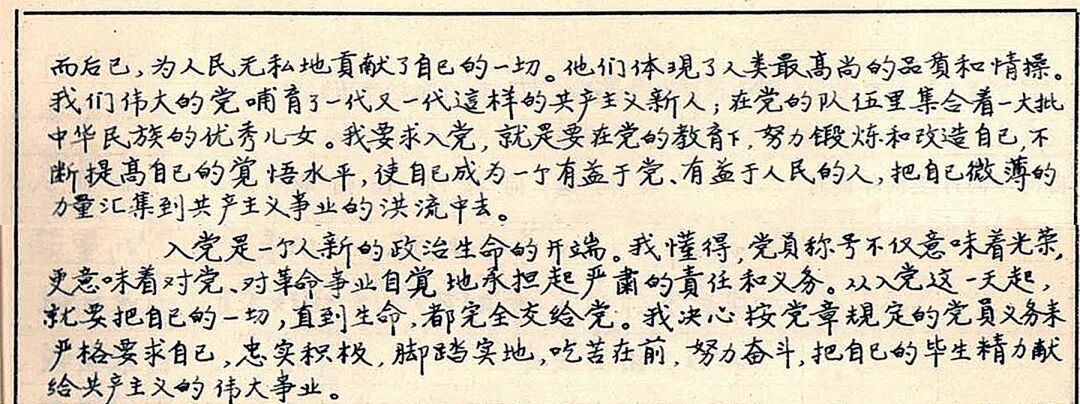 而后已，为人民无私地貢献了自己的一切。他们体现了人类最高尚的品质和情操。
我们伟大的党哺育了一代又一代這样的共产主义新人；在党的队伍里集合着一大批
中华民族的优秀儿女。我要求入党，就是要在党的教育下，努力锻炼和改造自己，不
断提高自己的覚悟水平，使自己成为一个有益于党、有益于人民的人，把自己微薄的
力量汇集到共产主义事业的洪流中去。
入党是一个人新的政治生命的开端。我懂得，党员称号不仅意味着光荣，
更意味着对党、对革命事业自覚地承担起严肃的責任和义务。从入党这一天起，
就要把自己的一切，直到生命，都完全交给党。我决心按党章规定的党员义务来
严格要求自己，忠实积极，脚踏实地，吃苦在前，努力奋斗，把自己的毕生精力献
给共产主义的伟大事业。